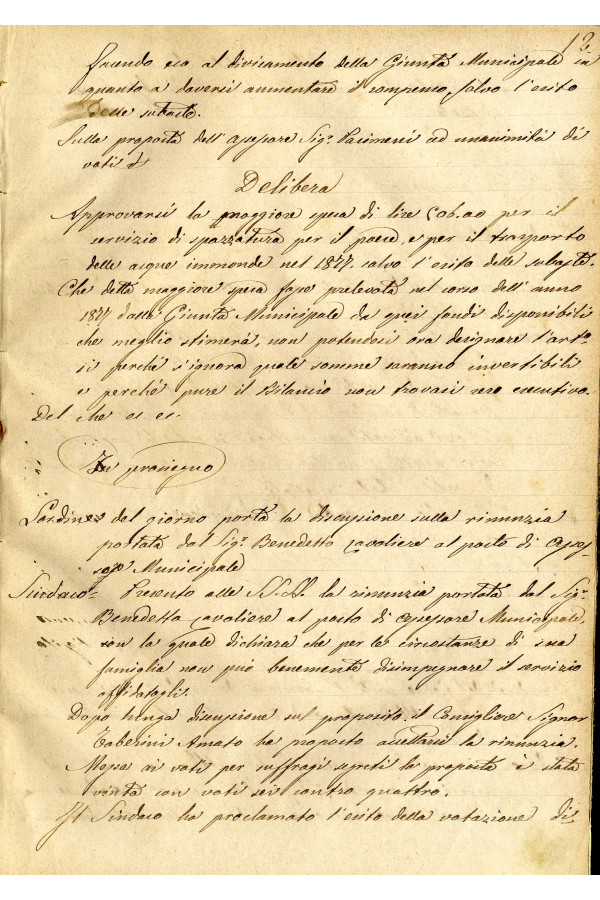 12
facendo eco al divisamento della Giunta Municipale in
quanto a doversi aumentare il compenso, salvo l'esito
delle subaste.
Sulla proposta dell'Assessore Sig.r Pacimeni ad unanimità di
voti
Delibera
Approvarsi la maggiore spesa di lire 506.00 per il
servizio di spazzatura per il paese, e per il trasporto
delle acque immonde nel 1877. salvo l'esito delle subaste.
Che detta maggiore spesa fosse prelevata nel corso dell'anno
1877 dalla Giunta Municipale da quei fondi disponibili
che meglio stimerà, non potendosi ora designare l'arto
si perchè s'ignora quale somme saranno invertibili
e perchè pure il Bilancio non trovasi reso esecutivo.
Del che es es.
In proseguo
L'ordine del giorno porta la discussione sulla rinunzia
portata dal Sig.r Benedetto Cavaliere al posto di Asses-
sore Municipale
Sindaco= Presento alle S.S.LL. la rinunzia portata dal Sig.r
Benedetto Cavaliere al posto di Assessore Municipale,
con la quale dichiara che per le circostanze di sua
famiglia non può benemente disimpegnare il servizio
affidatogli.
Dopo lunga discussione sul proposito, il Consigliere Signor
Amato ha proposto accettarsi la rinunzia.
Messa ai voti per suffragi segreti la proposta è stata
vinta con voti sei contro quattro.
Il Sindaco ha proclamato l'esito della votazione di-